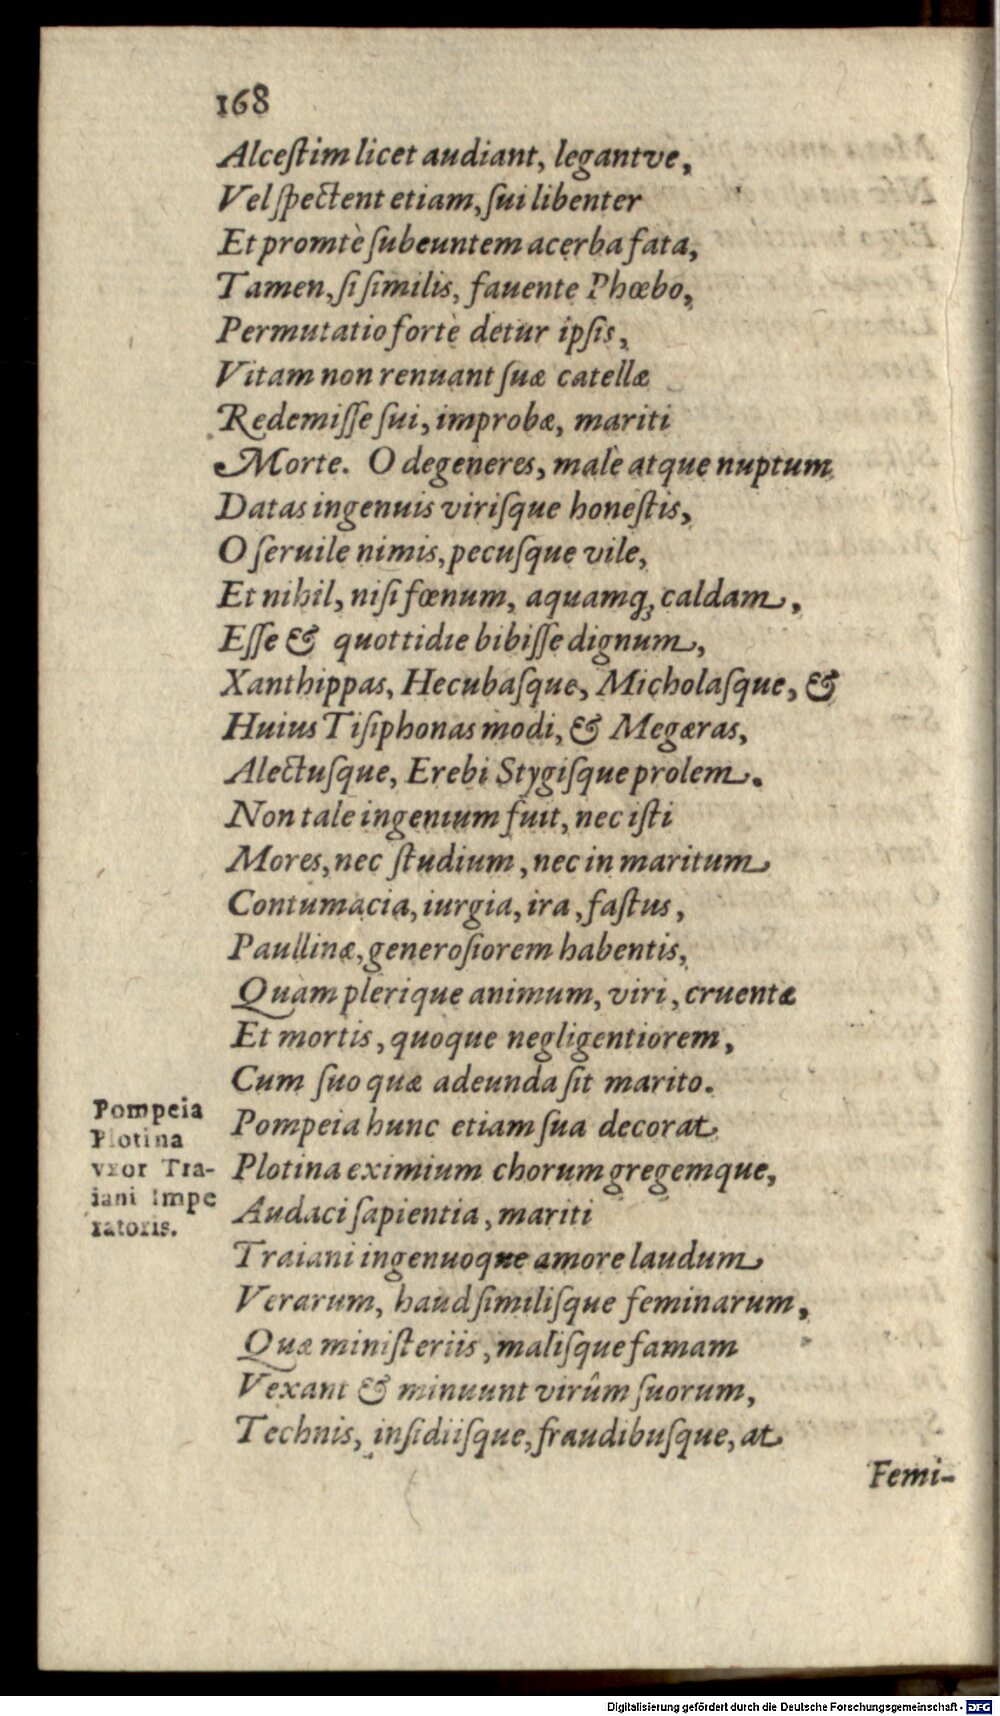 168
Alceſtim licet audiant, legantve,
Vel ſpectent etiam, ſui libenter
Et promtè ſubeuntem acerba fata,
Tamen, ſi ſimilis, fauente Phœbo,
Permutatio fortè detur ipſis,
Vitam non renuant ſuæ catellæ
Redemiſſe ſui, improbæ, mariti
Morte. O degeneres, malè atque nuptum
Datas ingenuis viriſque honeſtis,
O ſeruile nimis, pecuſque vile,
Et nihil, niſi fœnum, aquamq; caldam,
Eſſe & quottidie bibiſſe dignum,
Xanthippas, Hecubaſque, Micholaſque, &
Huius Tiſiphonas modi, & Megæras,
Alectuſque, Erebi Stygiſque prolem.
Non tale ingenium fuit, nec iſti
Mores, nec ſtudium, nec in maritum
Contumacia, iurgia, ira, faſtus,
Paullinæ, generoſiorem habentis,
Quàm plerique animum, viri, cruentæ
Et mortis, quoque negligentiorem,
Cum ſuo quæ adeunda ſit marito.
Pompeia
Plotina
vxor Tra-
iani Impe
ratoris.
Pompeia hunc etiam ſua decorat
Plotina eximium chorum gregemque,
Audaci ſapientia, mariti
Traiani ingenuoque amore laudum
Verarum, haud ſimiliſque feminarum,
Quæ miniſteriis, maliſque famam
Vexant & minuunt virûm ſuorum,
Technis, inſidiiſque, fraudibuſque, at
Femi-
Digitalisierung gefördert durch die Deutsche Forschungsgemeinschaft - DFG